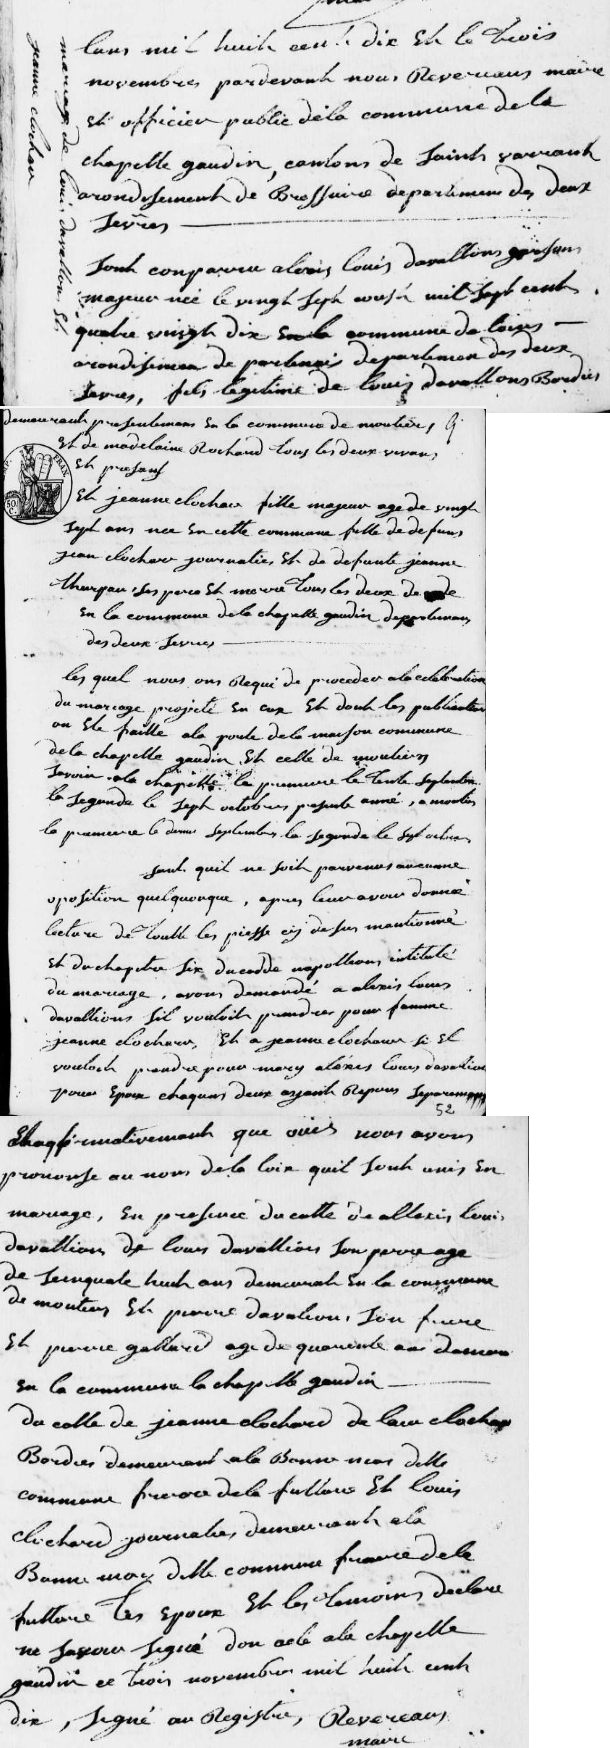 mariage de louis davallion Et
jeanne clochar
lans mil huit cent dix Et le trois
novembres pardevant nous Revereaus maire
Et officier public dela commune de la
chapelle gaudin, cantons de Saint varrant
arondisement de Bressuire departemens des deux
Sevres
Sont conparru alexis louis davallions garsons
majeur née le vingt Sept aoust mil Sept cent
quatre vingt dix En la commune de loires
arondisimen de partenais departemen des deux
Sevres, fils legitime de louis davallons Bordies
demeurant presentemens En la commune de moutiers
Et de madelaine Rochard tous les deux vivans
Et presans
Et jeanne clochar fille majeur age de vingt
Sept ans nee En cette commune fille de defuns
jean clochars journalies Et de defunte jeanne
thurpau Ses pere Et merre tous les deux
En la commune dela chapelle gaudin departemens
des deux Sevres
les quel nous ons Requi de proceder ala celebration
du mariage projeté En eux Et dont les publication
on Ete faitte ala porte dela maison commune
dela chapelle gaudin Et celle de moutiers
Savoir ala chapelle la premiere le trente Septembre
la Segonde le Sept octobres presente anné, a moutiers
la premiere le Septembre la Segonde le Sept octobre
Sant quil ne Soit parvenus aucunne
oposition quelquonque, apres leur avoir donné
lecture de toutte les piesse cy desus mantionné
Et duchapitre Six ducodde napollions intitulé
du mariage, avons demandé a alexis louis
davallions Sil vouloit prendres pour famme
jeanne clochars, Et a jeanne clochars Si El
vouloit prendre pour mary alexis louis davallion
pour Epoux chaquns deux ayant Repons Separemans
52
Et affirmativemant que ouis nous avons
prononse au nom dela loix quil Sont unis En
mariage, En presence ducotte de allexis louis
davallions de louis davallions Son perre age
de Seinquate huit ans demeurant En la commune
de moutiers Et pierre davalions Son frere
Et pierre gallard age de quarente ans demeu
En la commune la chapelle gaudin
du cotte de jeanne clochard de clochar
Bordies demeurant ala Bonne ditte
commune frerre dela future Et louis
clochard journalies demeurant ala
Bonne ditte commune frerre dela
future les Epoux Et les temoins declare
ne Savoir Signé don acte ala chapelle
gaudin ce trois novembre mil huit cent
dix, Signé au Registre, Revereaus
maire